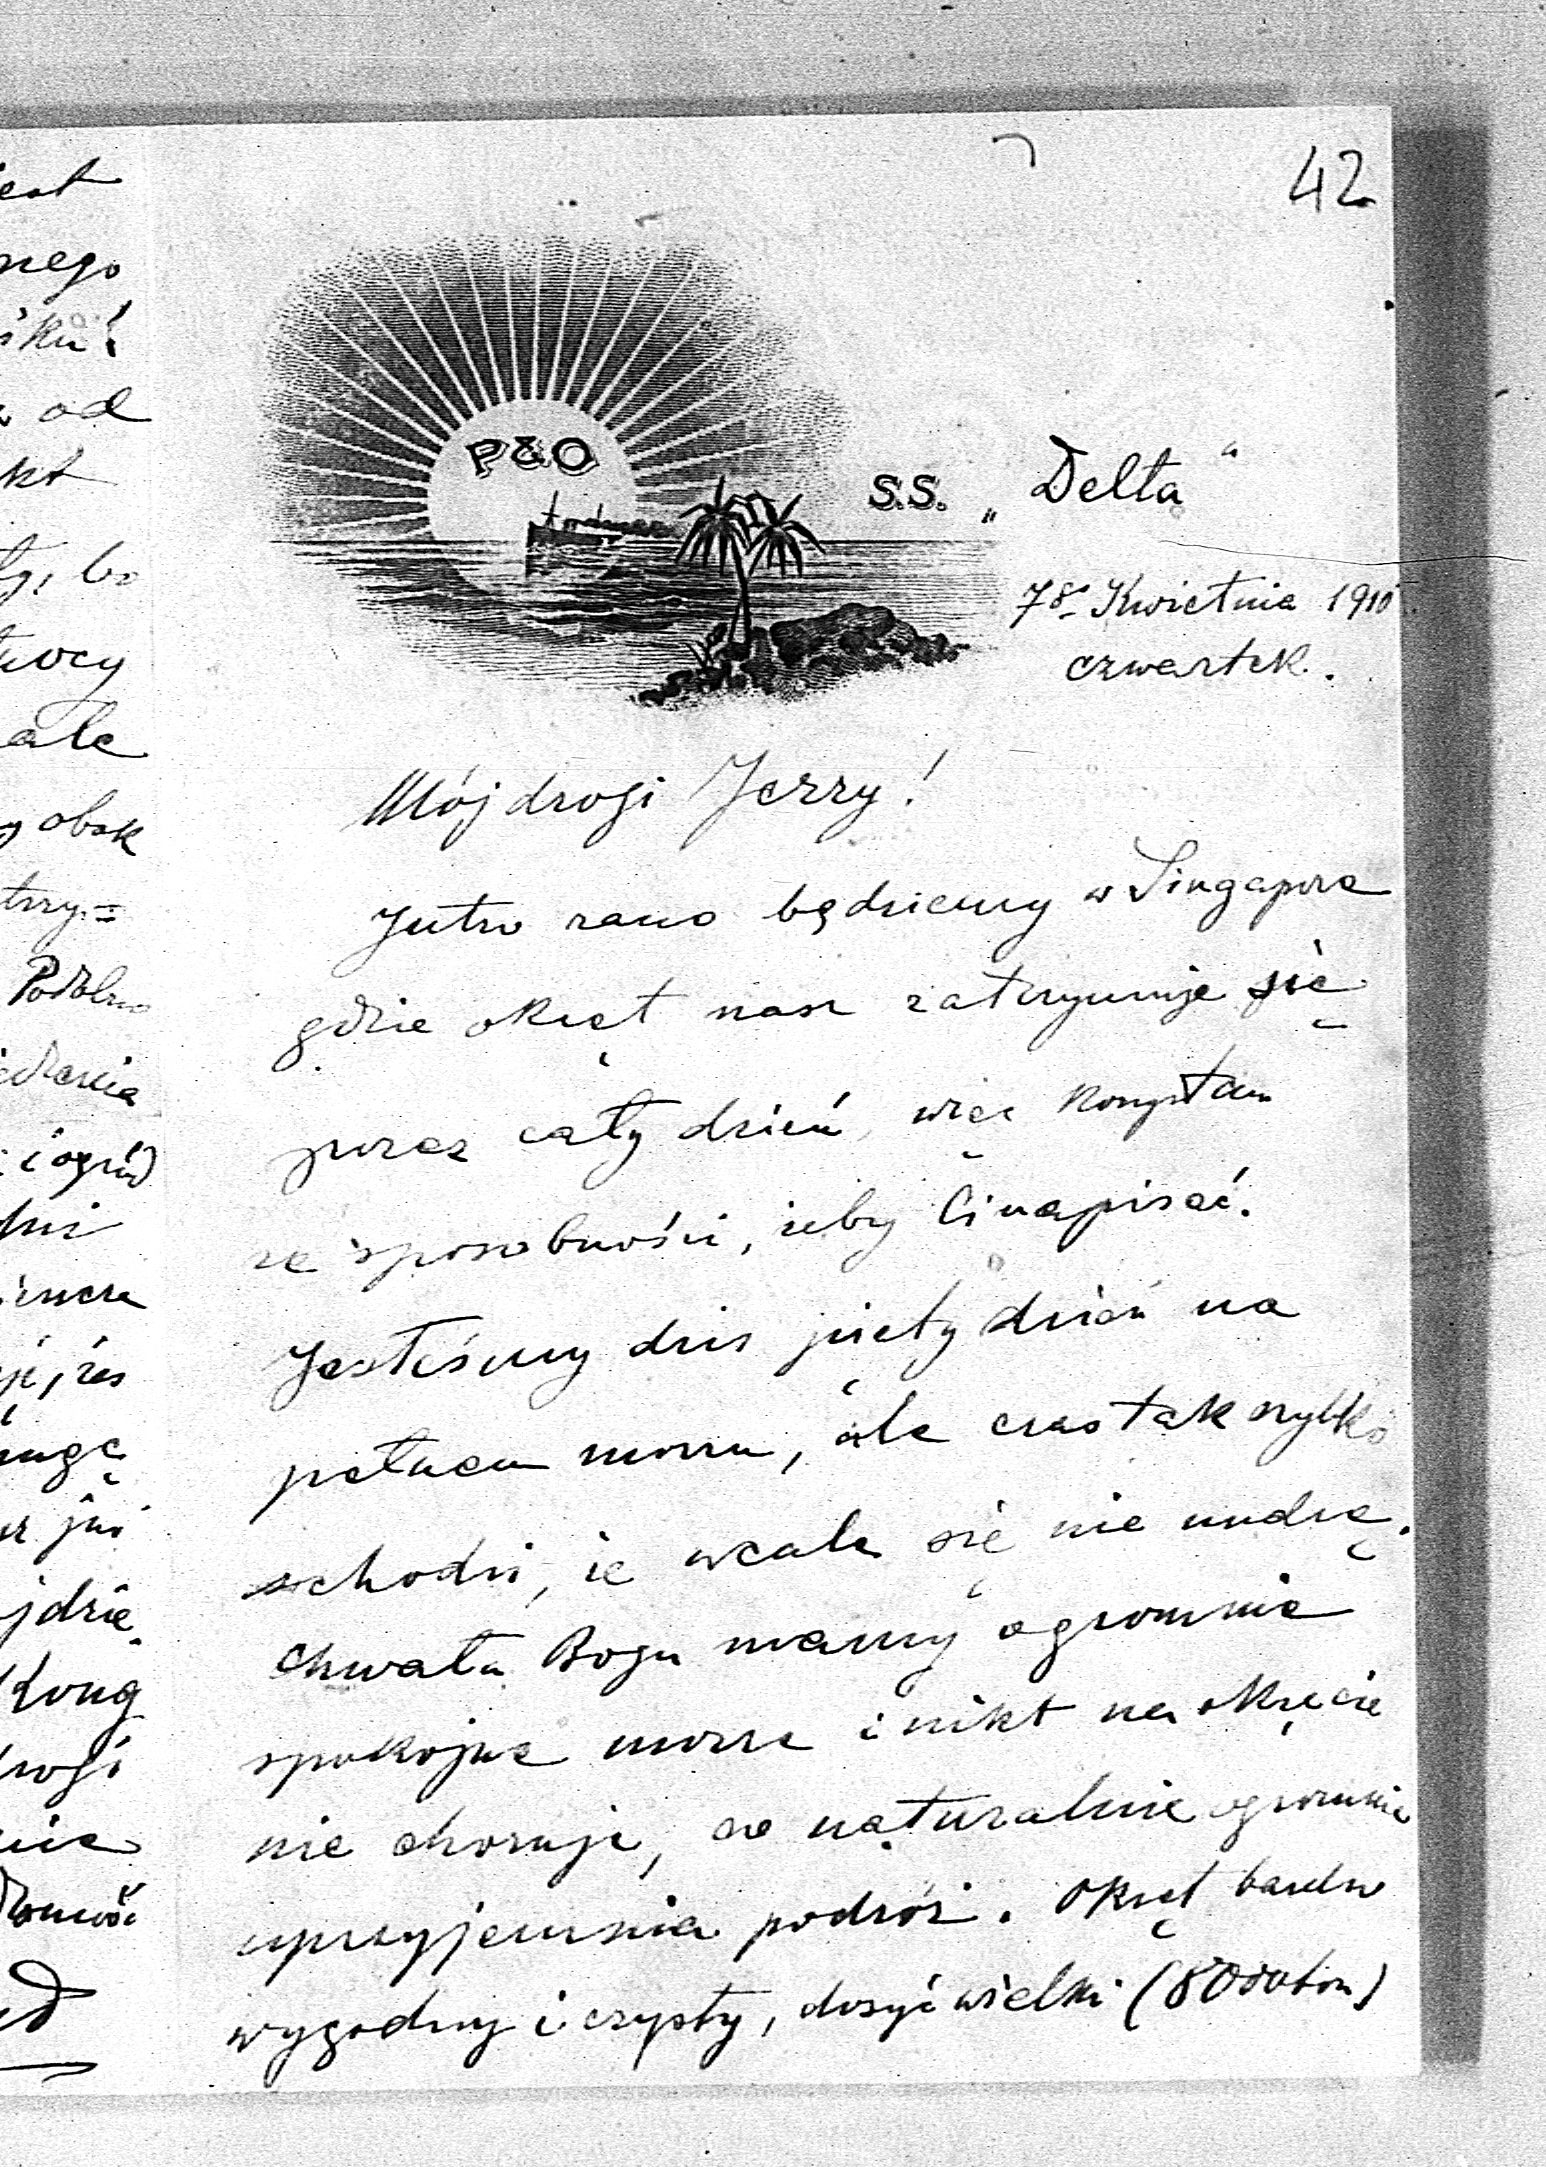 42
P&O
S.S. „Delta“
78 Kwietnia 1910
czwartek.
Mój drogi Jerzy!
Jutro rano będziemy w Singapore
gdzie okręt nasz zatrzymuje się
przez cały dzień, więc korzystam
ze sposobności, żeby Ci napisać.
Jesteśmy dziś piąty dzień na
pełnem morzu, ale czas tak szybko
schodzi, że wcale się nie nudzę.
Chwała Bogu mamy ogromnie
spokojne morze i nikt na okręcie
nie choruje, co naturalnie ogromnie
uprzyjemnia podróż. Okręt bardzo
wygodny i czysty, dosyć wielki (8000 ton)
nego
od
ale
obok
i ogród
Kong